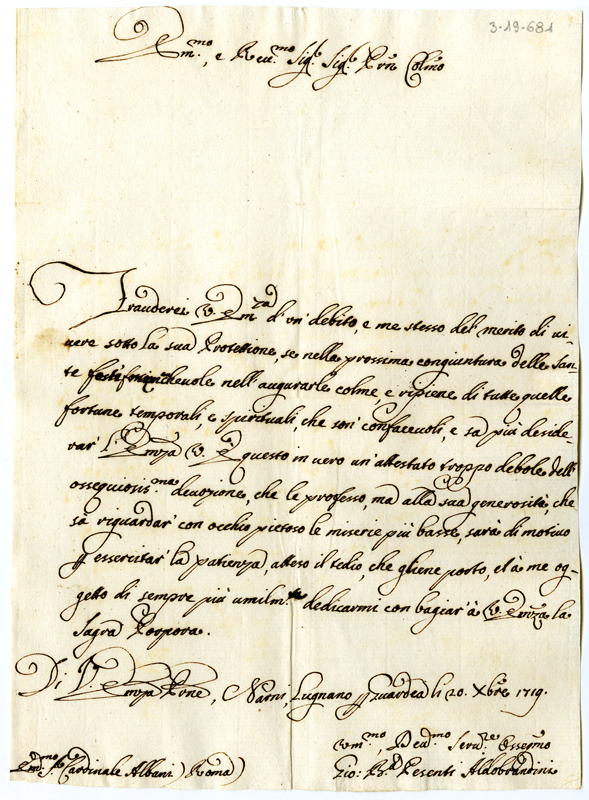 3-19-681
Em.mo, e Reu.mo Sig.r Sig.r Prn Colmo
Frauderei V. Em.za d'un debito, e me stesso del merito di ui-
uere sotto la sua Protettione, se nella prossima congiuntura delle San-
te feste mancheuole nell'augurarle colme, e ripiene di tutte quelle
fortune temporali, e spirituali, che son confaceuoli, e sa più deside
rar' l'Emza V. E questo in uero un'attestato troppo debole dell'
ossequiosis.ma deuozione, che le professo, ma alla sua generosità, che
sà riguardar' con occhio pietoso le miserie più basse, sarà di motiuo
p essercitar' la patienza, atteso il tedio, che gliene porto, et à me og-
getto di sempre più umilm.te dedicarmi con bagiar' à V. Emza la
Sagra Porpora.
Di V. Emza Prne, Narni, Lugnano p Guardea li 20. Xbre 1719.
Vm.mo Deu.mo Seru.re Osseqmo
Gio: B.a Pesenti Aldobrandini
Em.mo S.r Cardinale Albani) Roma)